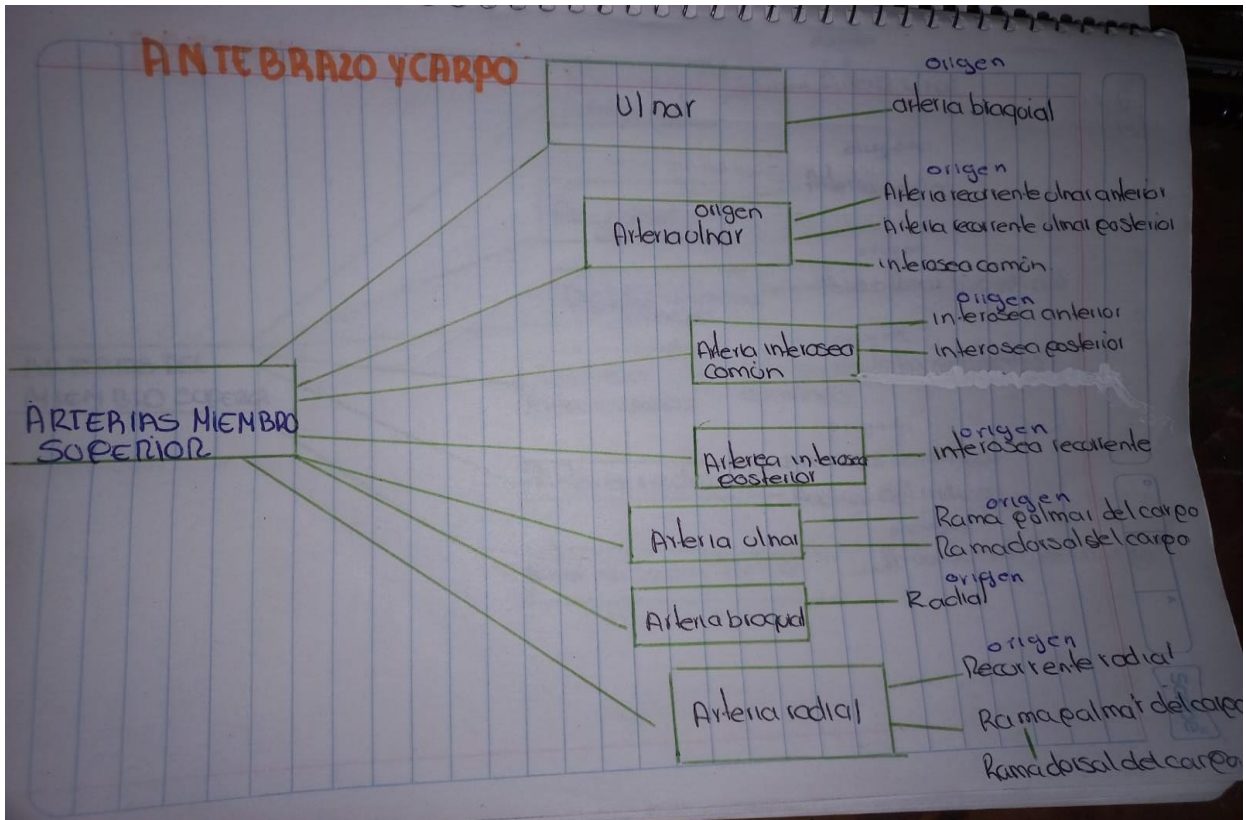 ANTEBRAZO Y CARPO
ARTERIAS MIEMBRO
SUPERIOR
Ulnar
origen
arteria braquial
origen
Arteria ulnar
origen
Arteria recurrente ulnar anterior
Arteria recurrente ulnar posterior
interosea común
Arteria interosea
común
origen
interosea anterior
interosea posterior
Arterea interosea
posterior
origen
interosea recurrente
Arteria ulnar
origen
Rama palmar del carpo
Rama dorsal del carpo
Arteria braquial
origen
Radial
Arteria radial
origen
Recurrente radial
Rama palmar del carpo
Rama dorsal del carpo